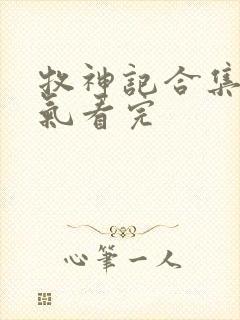 牧神記合集
氣看完
心筆一人